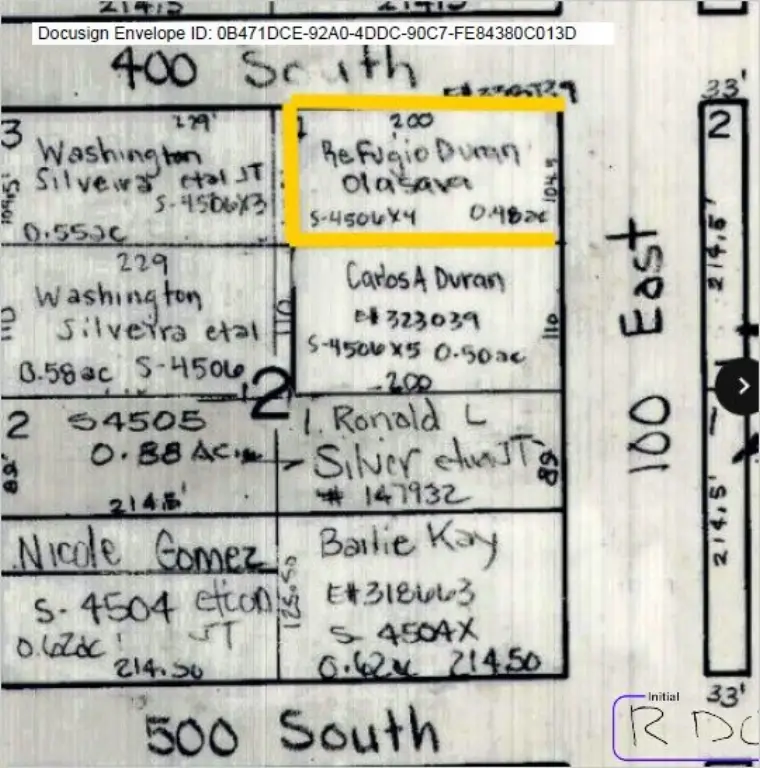 214.5
Docusign Envelope ID: 0B471DCE-92A0-4DDC-90C7-FE84380C013D
400 South
3
229'
Washington
Silveira etal JT
S-4506X3
104.5'
0.55ac
1
200
Refugio Duran
Olasava
104.5
S-4506X4 0.48ac
229
Washington
Silveira etal
110
0.58ac S-4506
110
Carlos A Duran
E# 323039
110
S-4506X5 0.50ac
200
2
2 S4505
0.88 Ac.
89'
214.5'
1. Ronald L
Silver etux JT
89'
# 147932
Nicole Gomez
S-4504 etcon
JT
0.62ac
214.50
125.50
Bailie Kay
E# 318663
S-4504X
0.62ac 214.50
100 East
33'
2
214.5'
214.5'
33'
500 South
Initial